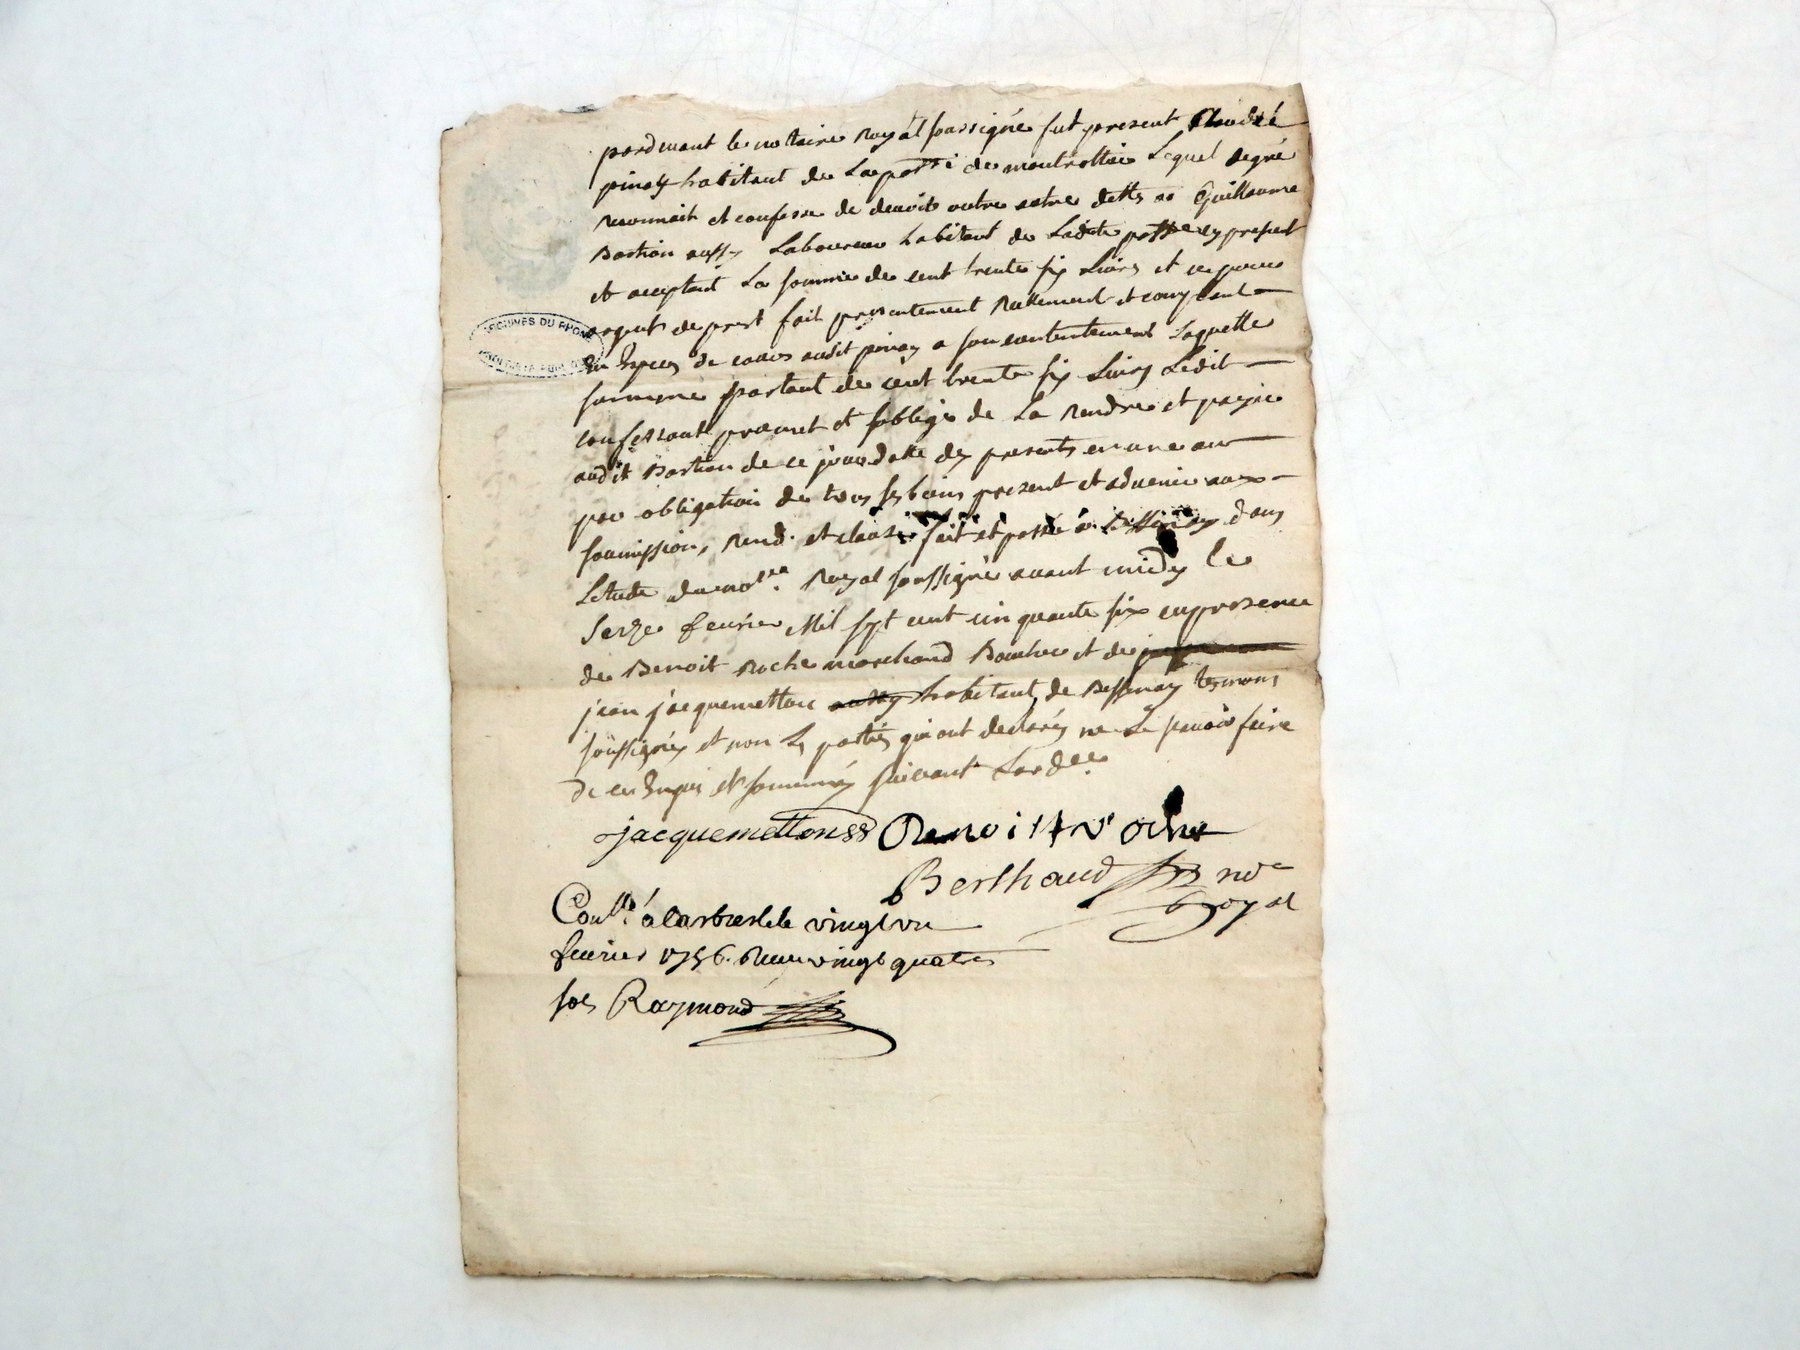 pardevant le notaire Royal soussigné fut present Claude
pinay habitant de La parss.e de montrottier Lequel degré
reconnait et confesse de devoir outre autre dettes a Guillaume
Bastion aussy Laboureur habitant de Ladite parsse cy present
et aceptant La somme de cent trente six Livres et ce pour
argent de prest fait presentement reellement et comptant
En Especes de cours audit pinay a son contentement Laquelle
somme partant de cent trente six Livres Ledit
confessant promet et soblige de La rendre et payer
audit Bastion de ce jour datte des presentes en une an
par obligation de tous ses biens present et advenir aux
soumission, rend. et clause. fait et passé a Bessenay dans
Letude du not.re Royal soussigné avant midy le
seize fevrier Mil sept cent cinquante six en presence
de Benoit Roche marchand Boucher et de
jean jacquemetton aussy habitant de Bessenay temoins
soussignés et non Les parties qui ont declarés ne Le pouvoir faire
de ce Enquis et sommés suivant Lord.ce
jacquemettonss Benoit Roche
Berthaud no.re
Royal
Con.llé a Larbresle le vingt un
fevrier 1756. Receu vingt quatre
sols Raymond
ARCHIVES DU RHONE